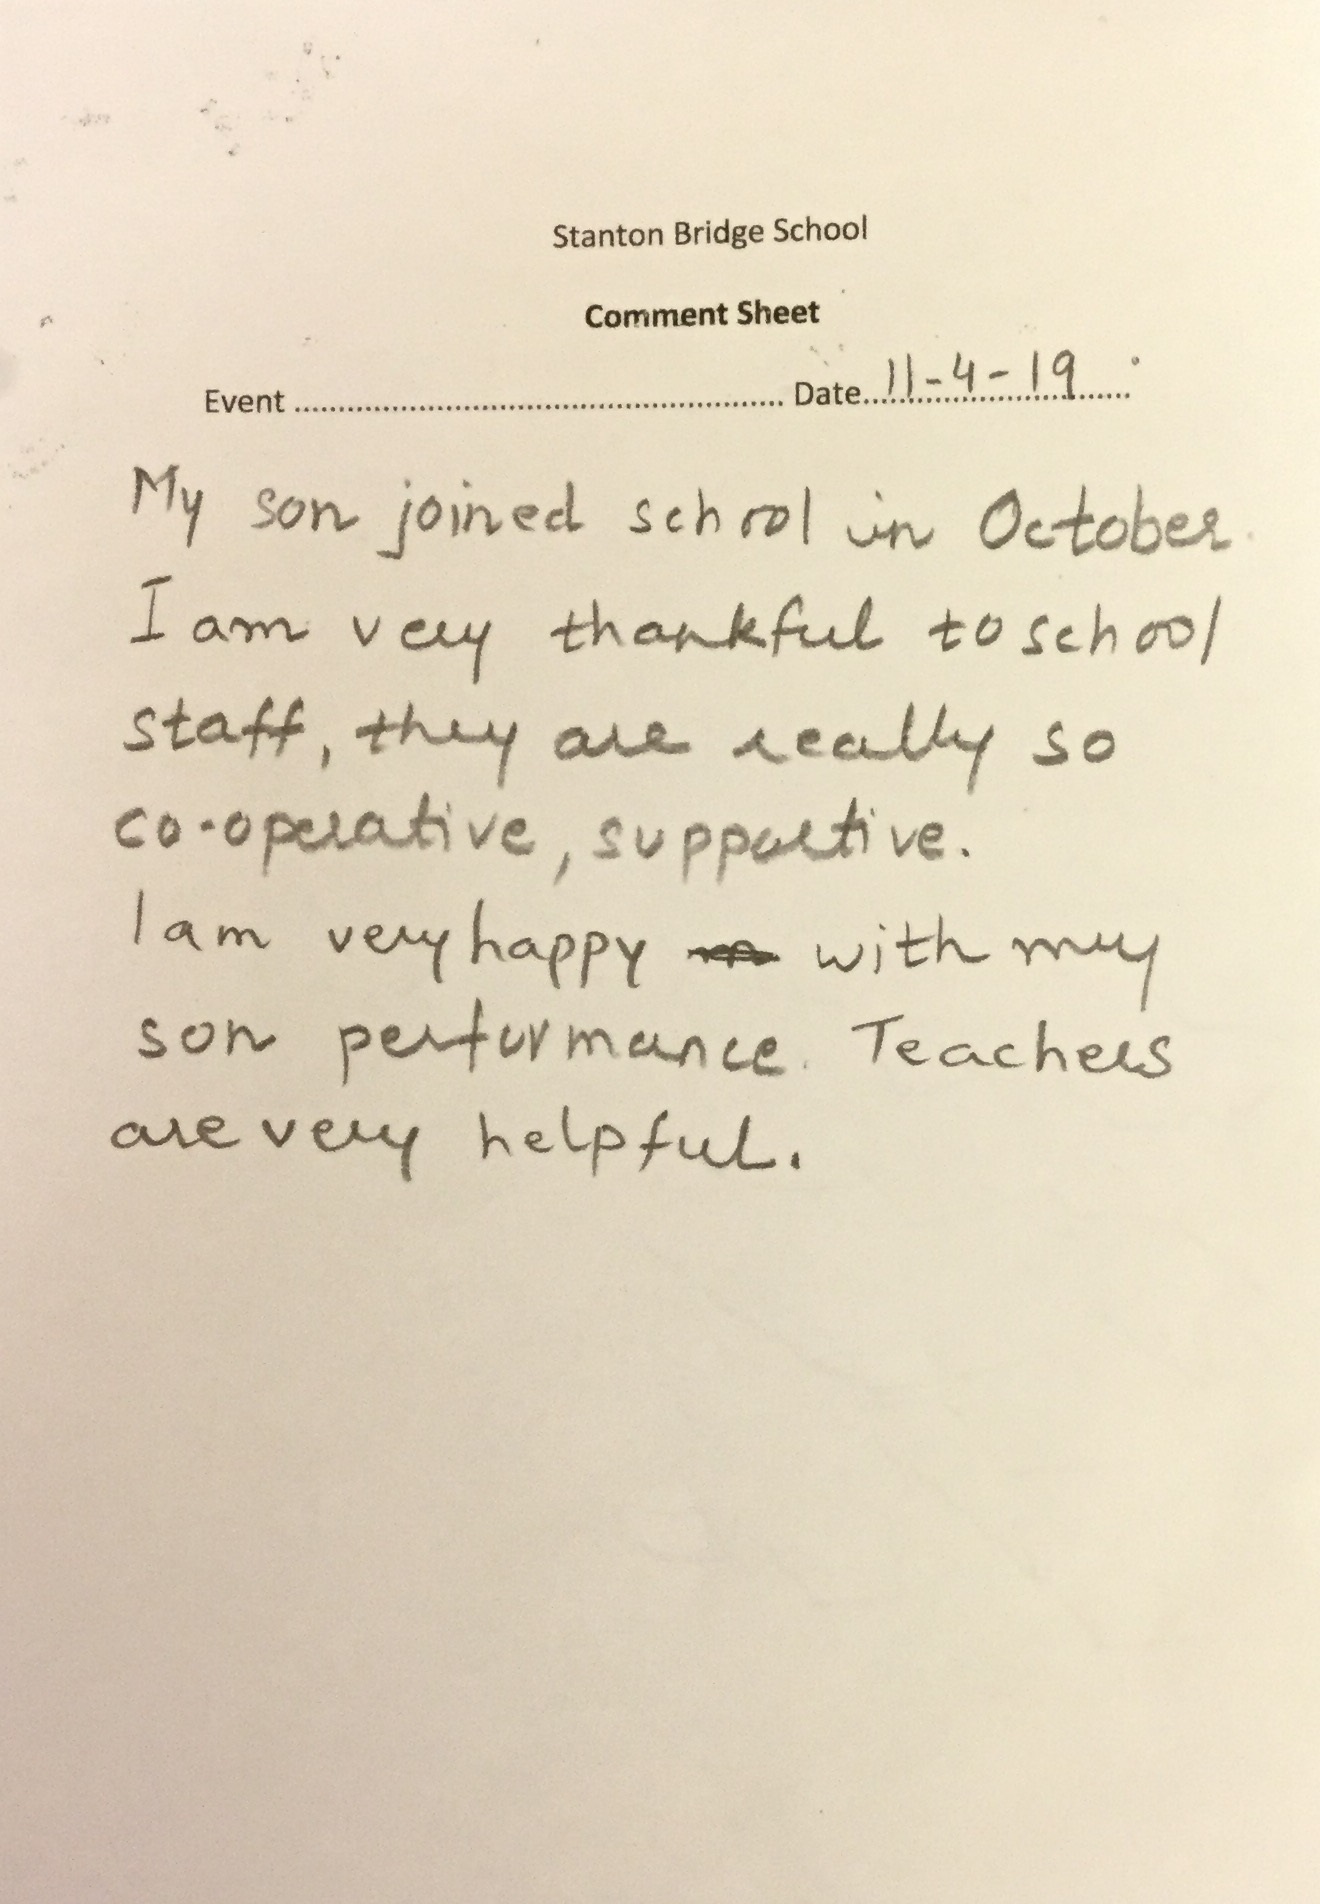 Stanton Bridge School
Comment Sheet
Event ........................................................ Date 11-4-19
My son joined school in October.
I am very thankful to school
staff, they are really so
co-operative, supportive.
I am very happy with my
son performance. Teachers
are very helpful.